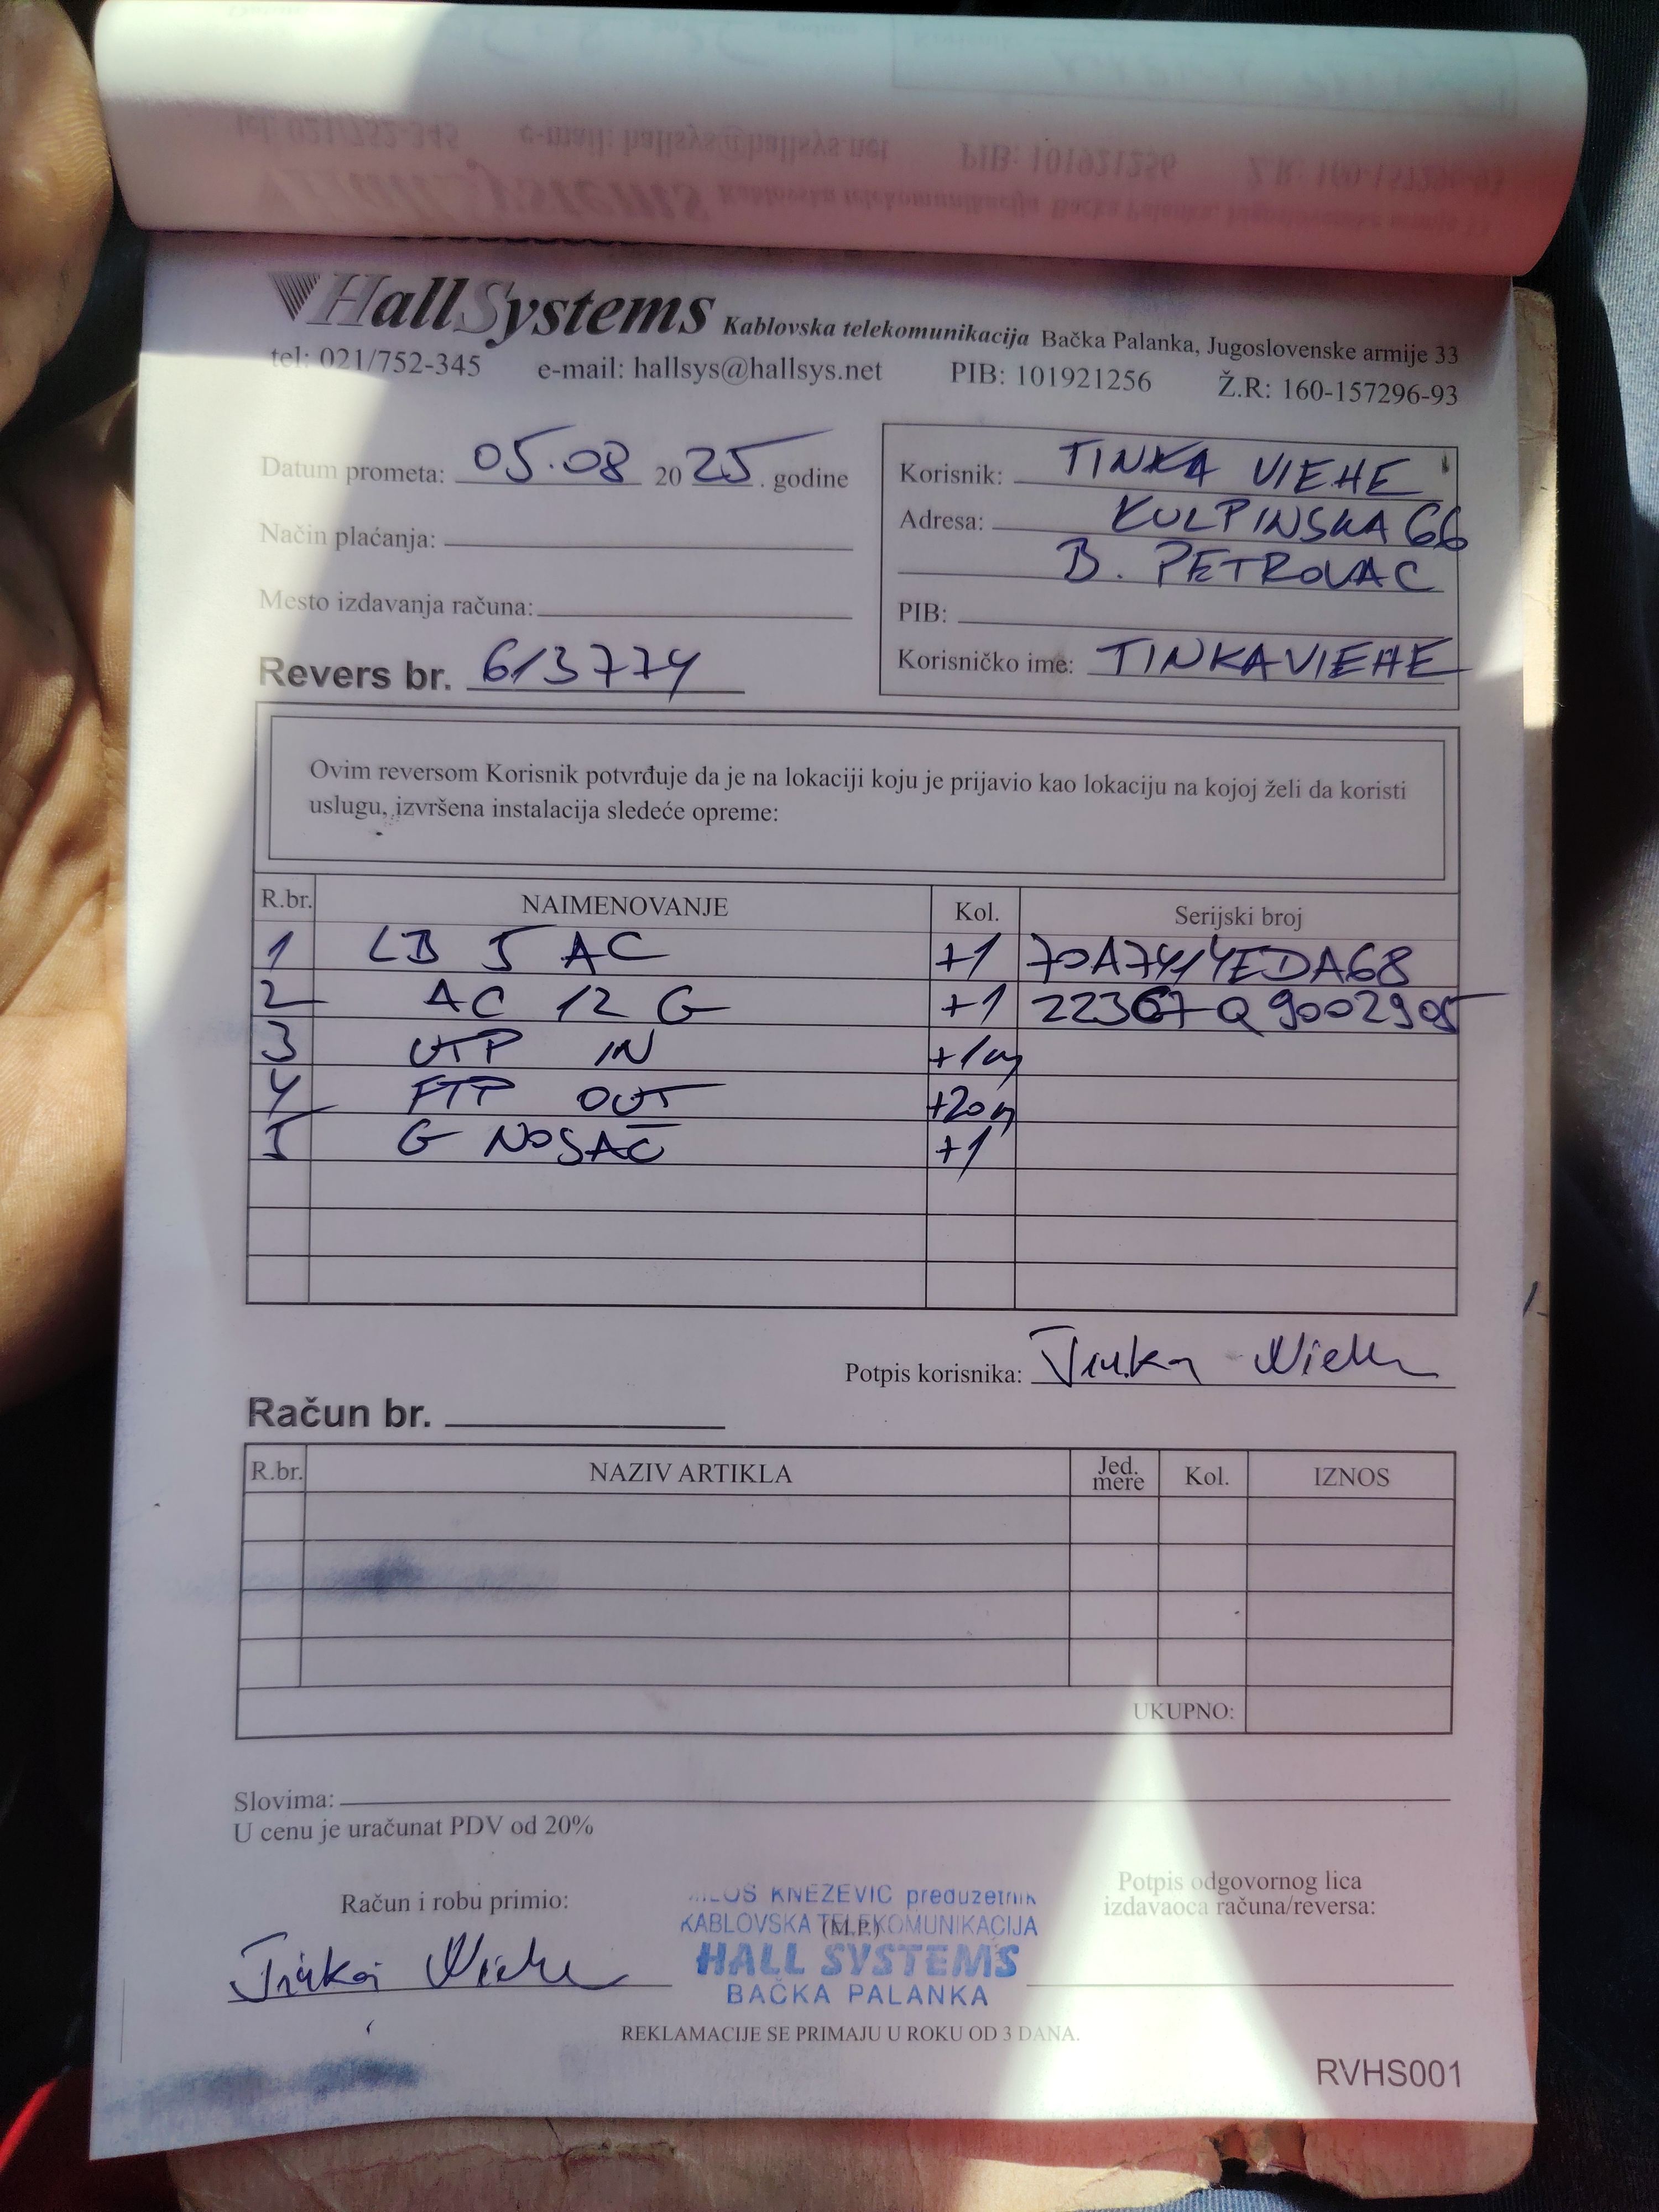 HallSystems Kablovska telekomunikacija Bačka Palanka, Jugoslovenske armije 33
tel: 021/752-345 e-mail: hallsys@hallsys.net PIB: 101921256 Ž.R: 160-157296-93
Datum prometa: 05.08 2025. godine
Način plaćanja:
Mesto izdavanja računa:
Revers br. 613774
Korisnik: TINKA VIEHE
Adresa: KULPINSKA 66
B. PETROVAC
PIB:
Korisničko ime: TINKAVIEHE
Ovim reversom Korisnik potvrđuje da je na lokaciji koju je prijavio kao lokaciju na kojoj želi da koristi
uslugu, izvršena instalacija sledeće opreme:
R.br. NAIMENOVANJE Kol. Serijski broj
1 LB 5 AC +1 70A7414EDA68
2 AC 12 G +1 22367Q9002905
3 UTP IN +1m
4 FTP OUT +20m
5 G NOSAČ +1
Potpis korisnika: Tinka Viehe
Račun br.
R.br. NAZIV ARTIKLA Jed. mere Kol. IZNOS
UKUPNO:
Slovima:
U cenu je uračunat PDV od 20%
Račun i robu primio: Tinka Viehe
KNEZEVIC preduzetnik
KABLOVSKA TELEKOMUNIKACIJA
(M.P.)
HALL SYSTEMS
BAČKA PALANKA
Potpis odgovornog lica
izdavaoca računa/reversa:
REKLAMACIJE SE PRIMAJU U ROKU OD 3 DANA.
RVHS001